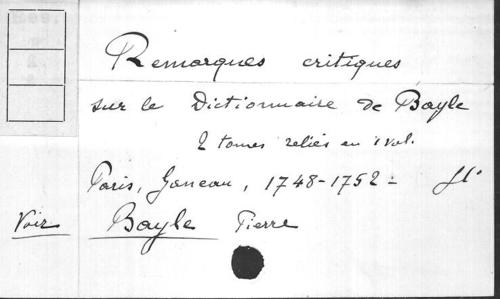 Remarques critiques
sur le Dictionnaire de Bayle
2 tomes reliés en 1 vol.
Paris, Ganeau, 1748-1752 -
Voir Bayle Pierre